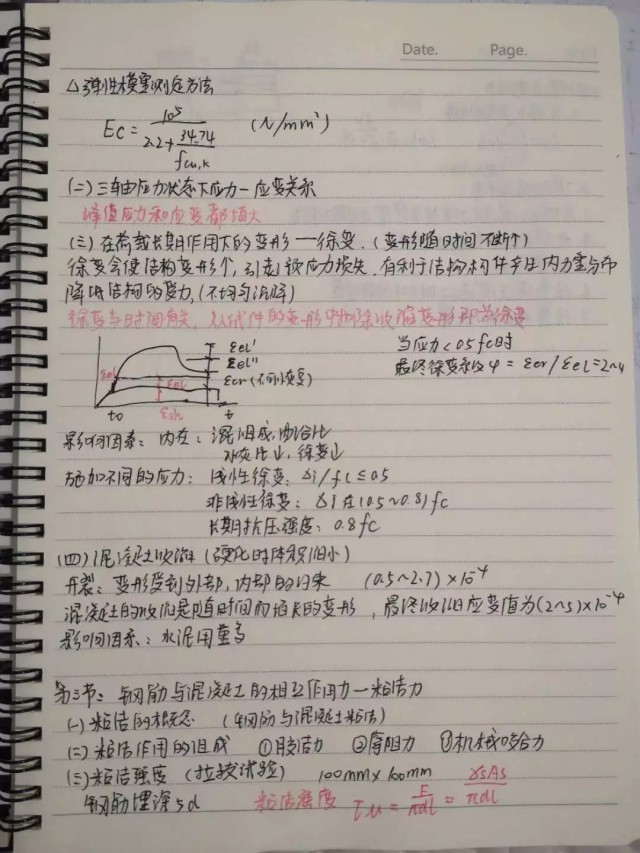 Date. Page.
△弹性模量测定方法
Ec = 10⁵ / (2.2 + 34.74 / fcu,k) (N/mm²)
(二) 三轴应力状态下应力-应变关系
峰值应力和应变都增大
(三) 在荷载长期作用下的变形——徐变. (变形随时间不断个)
徐变会使结构变形个, 引起预应力损失, 有利于结构构件产生内力重分布
降低结构的受力, (不均匀沉降)
徐变与时间有关, 从试件的变形中扣除收缩变形即为徐变
εel'
εel''
εcr (不可恢复)
εel
εel
εsh
t0 t
当应力<0.5fc时
最终徐变系数 φ = εcr/εel = 2~4
影响因素: 内在: 混凝组成, 配合比
水灰比↓, 徐变↓
施加不同的应力: 线性徐变: σi/fc ≤ 0.5
非线性徐变: σi在(0.5~0.8)fc
长期抗压强度: 0.8fc
(四) 混凝土收缩 (硬化时体积缩小)
开裂: 变形受到外部, 内部的约束 (0.5~2.7)×10⁻⁴
混凝土的收缩是随时间而增长的变形, 最终收缩应变值为(2~5)×10⁻⁴
影响因素: 水泥用量多
第三节: 钢筋与混凝土的相互作用力—粘结力
(一) 粘结的概念 (钢筋与混凝土粘结)
(二) 粘结作用的组成 ①胶结力 ②摩阻力 ③机械咬合力
(三) 粘结强度 (拉拔试验) 100mm×100mm
钢筋埋深5d 粘结强度 τu = F/πdl = σsAs/πdl